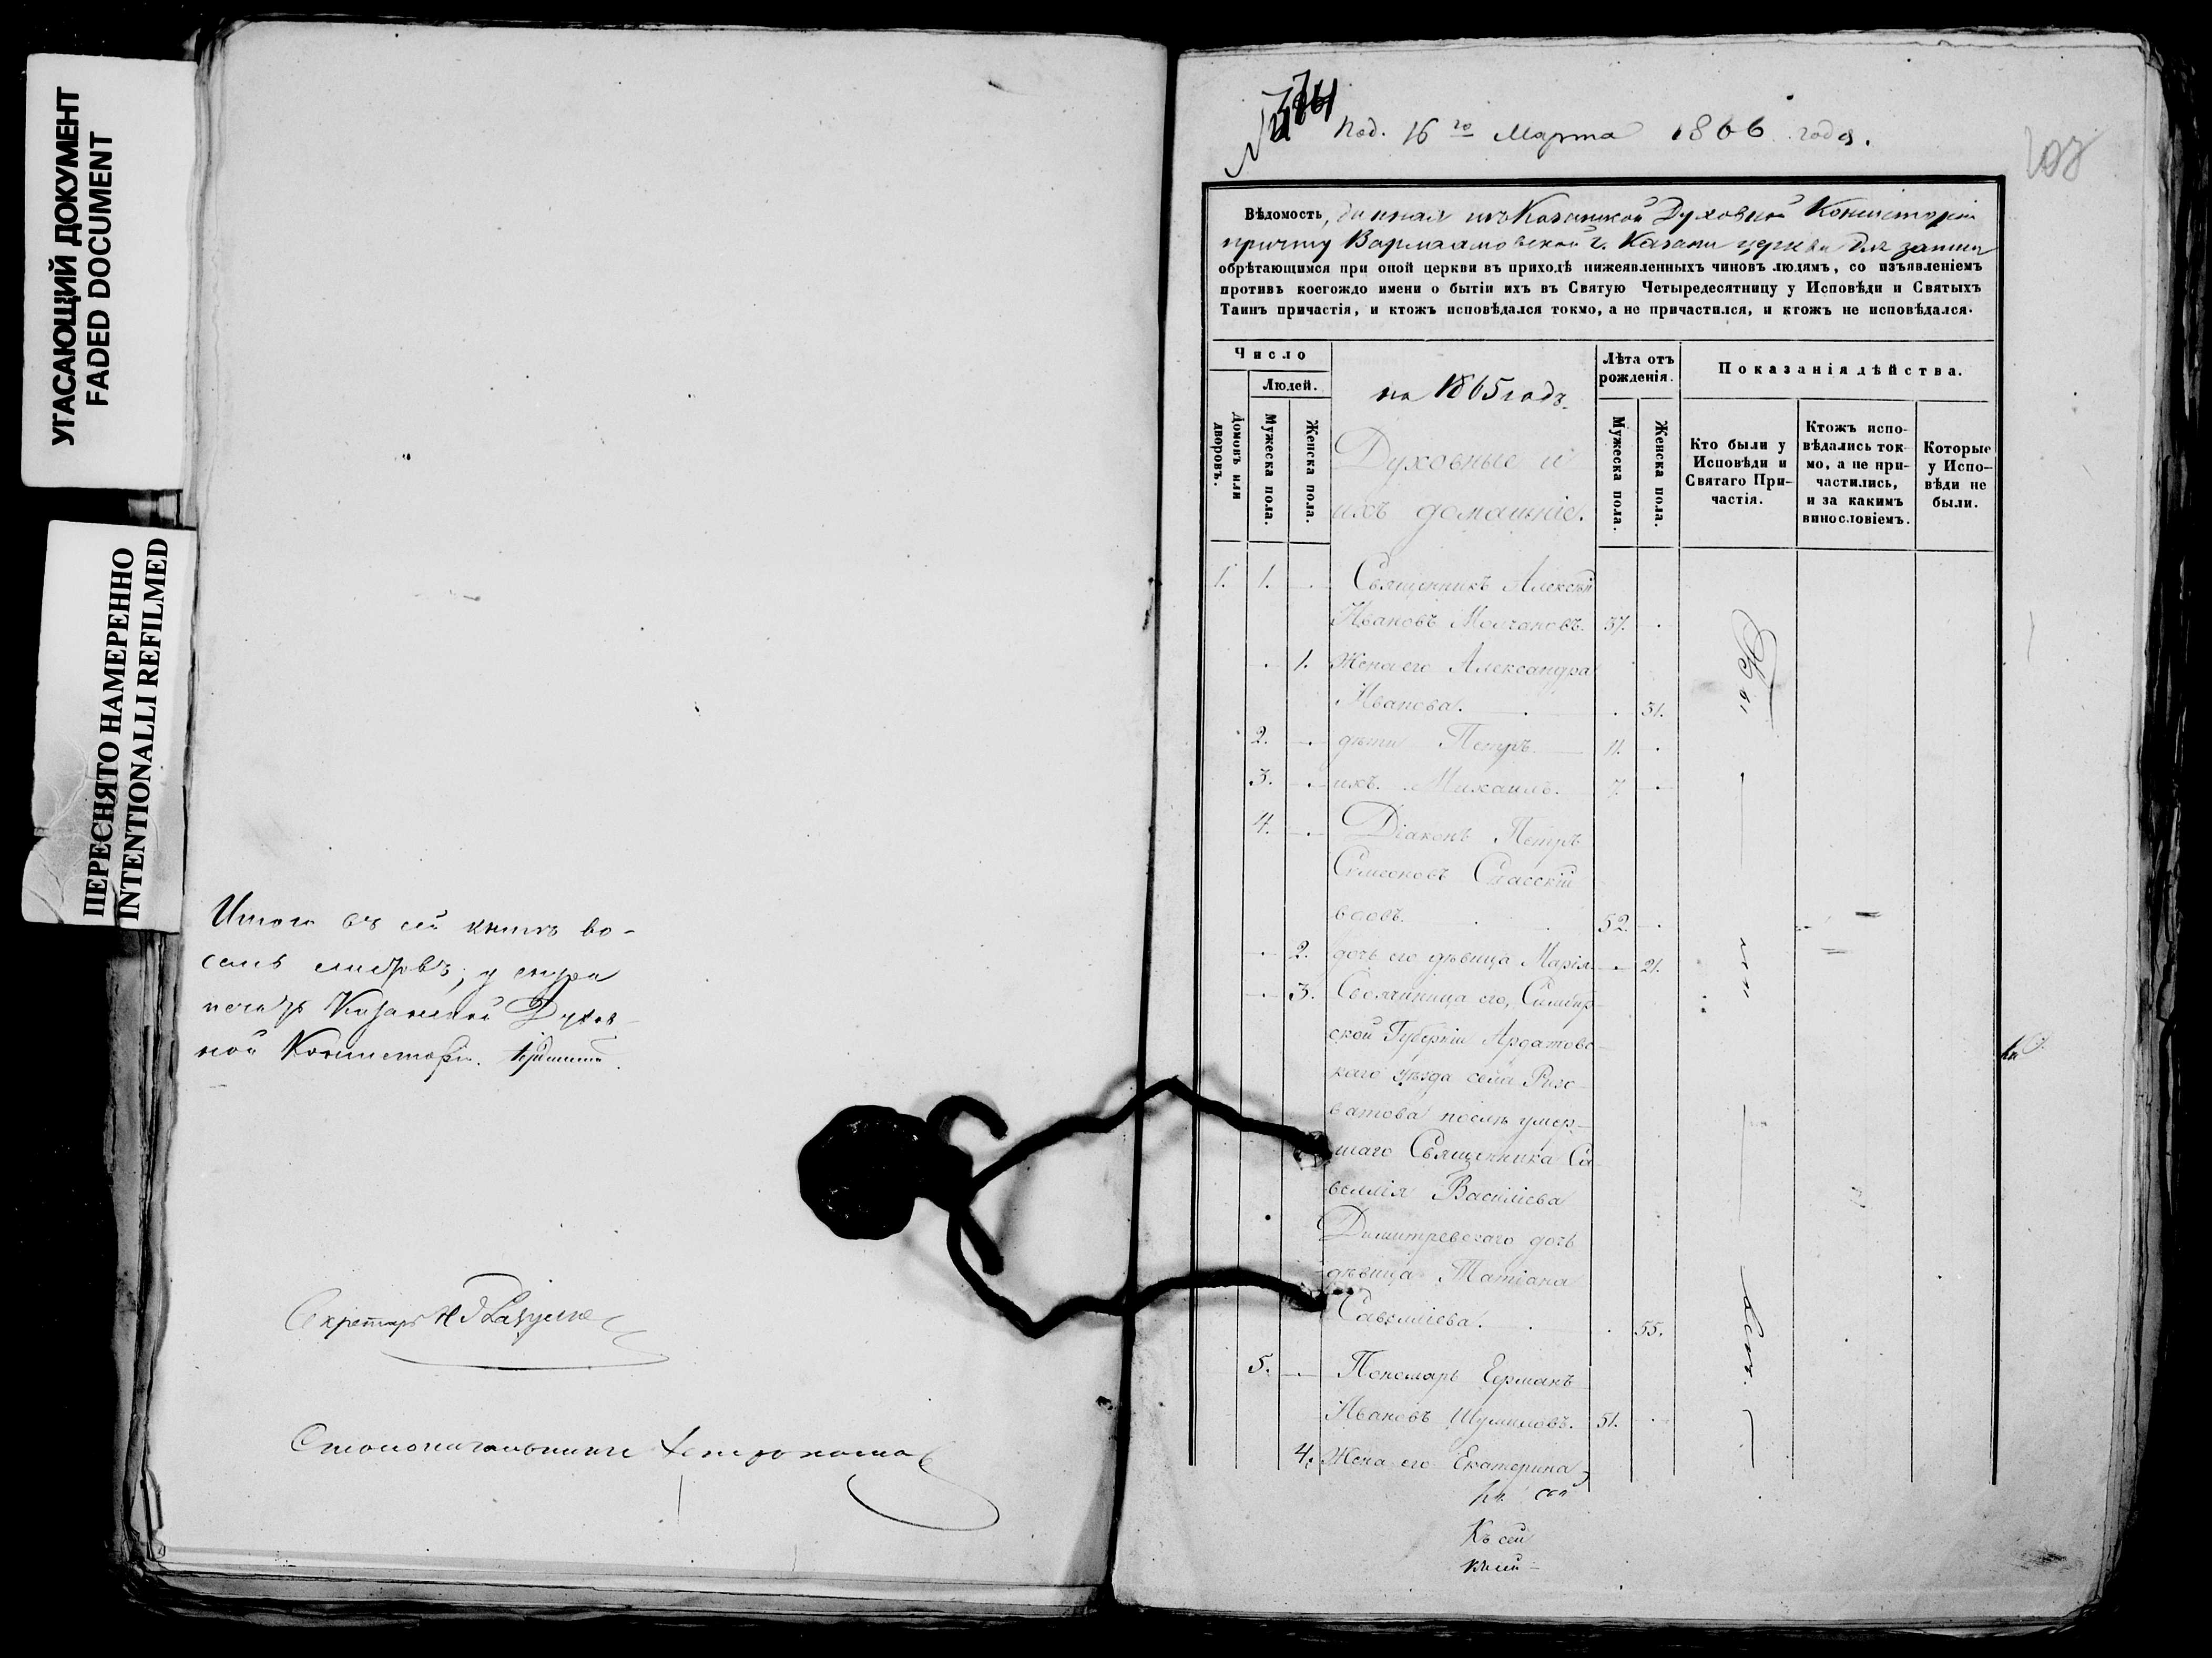 УГАСАЮЩИЙ ДОКУМЕНТ
FADED DOCUMENT
ПЕРЕСНЯТО НАМЕРЕННО
INTENTIONALLI REFILMED
Итого въ сей книгѣ во-
семь листовъ; у шнура
печать Казанской Духов-
ной Консисторіи.
Секретарь
Столоначальникъ
Под. 16го Марта 1866 года.
Вѣдомость, данная изъ Казанской Духовной Консисторіи
причту Варлаамовской г. Казани церкви для записи
обрѣтающимся при оной церкви въ приходѣ нижеявленныхъ чиновъ людямъ, со изъявленіемъ
противъ коегождо имени о бытіи ихъ въ Святую Четыредесятницу у Исповѣди и Святыхъ
Таинъ причастія, и ктожъ исповѣдался токмо, а не причастился, и ктожъ не исповѣдался.
Число
Людей.
Домовъ или дворовъ.
Мужеска пола.
Женска пола.
на 1865 годъ.
Духовные и
ихъ домашніе.
Лѣта отъ
рожденія.
Мужеска пола.
Женска пола.
Показанія дѣйства.
Кто были у
Исповѣди и
Святаго При-
частія.
Ктожъ испо-
вѣдались ток-
мо, а не при-
частились,
и за какимъ
винословіемъ.
Которые
у Испо-
вѣди не
были.
1. 1. Священникъ Алексѣй
Ивановъ Молчановъ. 37.
1. Жена его Александра
Иванова. 31.
2. дѣти Петръ 11.
3. ихъ. Михаилъ. 7.
4. Діаконъ Петръ
Симеоновъ Спасскій
вдовъ. 52.
2. дочь его дѣвица Марія 21.
3. Своячиница его, Симбир-
ской Губерніи Ардатовс-
каго уѣзда села
ватова послѣ умер-
шаго Священника Са-
веллія Василіева
Димитревскаго дочь
дѣвица Татіана
Савелліева. 55.
5. Пономарь Германъ
Ивановъ Шумиловъ. 51.
4. Жена его Екатерина
Къ сей